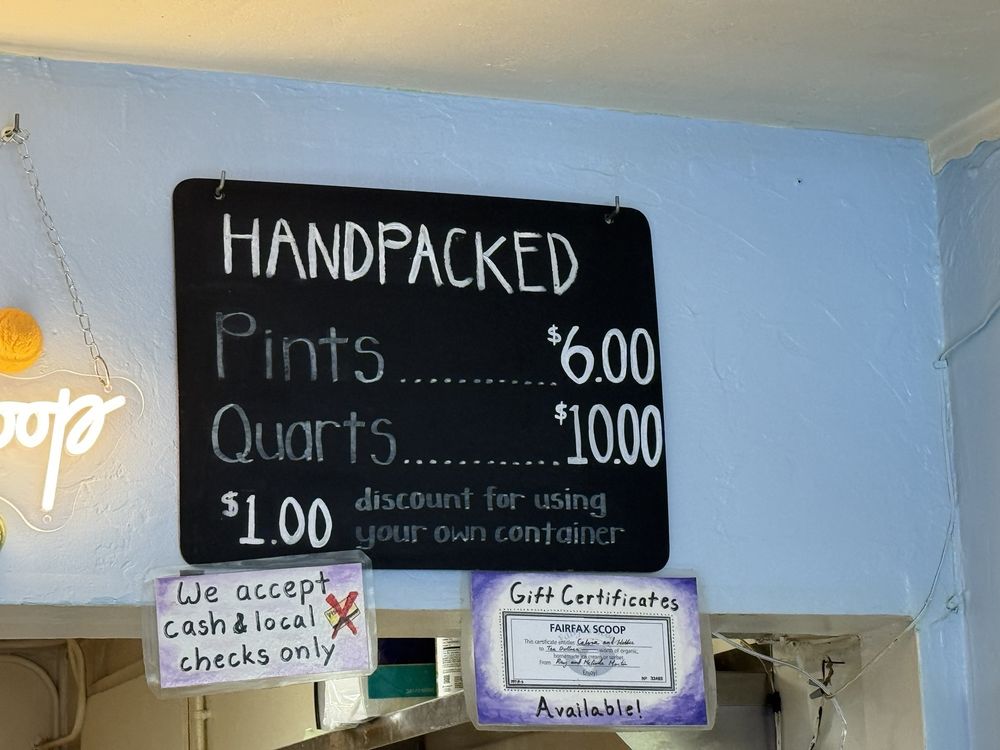 HANDPACKED
Pints ............ $6.00
Quarts ............ $10.00
$1.00 discount for using
your own container
We accept
cash & local
checks only
Gift Certificates
FAIRFAX SCOOP
This certificate entitles Calvin and Hobbes
to Ten Dollars worth of organic,
homemade ice cream or sorbet
From Ray and Melinda Martin
Enjoy!
Available!